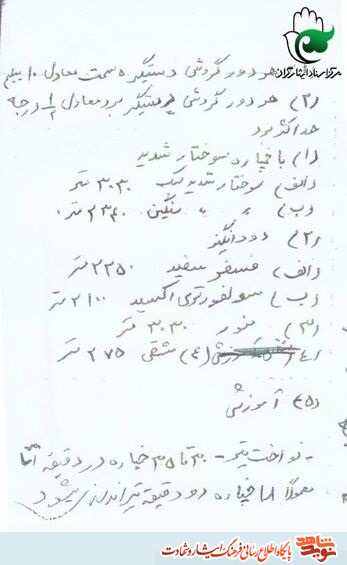 مرکز اسناد ایثارگران
هر دور گردشی دستگیره سمت معادل ۱۰ میلیم
(۲) هر دور گردشی دستگیر برد معادل ۱/۲ درجه
حداکثر برد
(۱) با خپاره سوختار شدید
(الف) سوختار شدید سبک ۳۰۳۰ متر
(ب) " " سنگین ۲۳۴۰ متر
(۲) دودانگیز
(الف) فسفر سفید ۲۲۵۰ متر
(ب) سولفورتری اکسید ۲۱۰۰ متر
(۳) منور ۳۰۳۰ متر
(۴) مشقی ۲۷۵ متر
(۵) آموزشی
- نواخت تیر - ۳۰ تا ۳۵ خپاره در دقیقه اما
معمولاً ۱۸ خپاره در دقیقه تیراندازی میشود
نوید شاهد
پایگاه اطلاع رسانی فرهنگ ایثار و شهادت